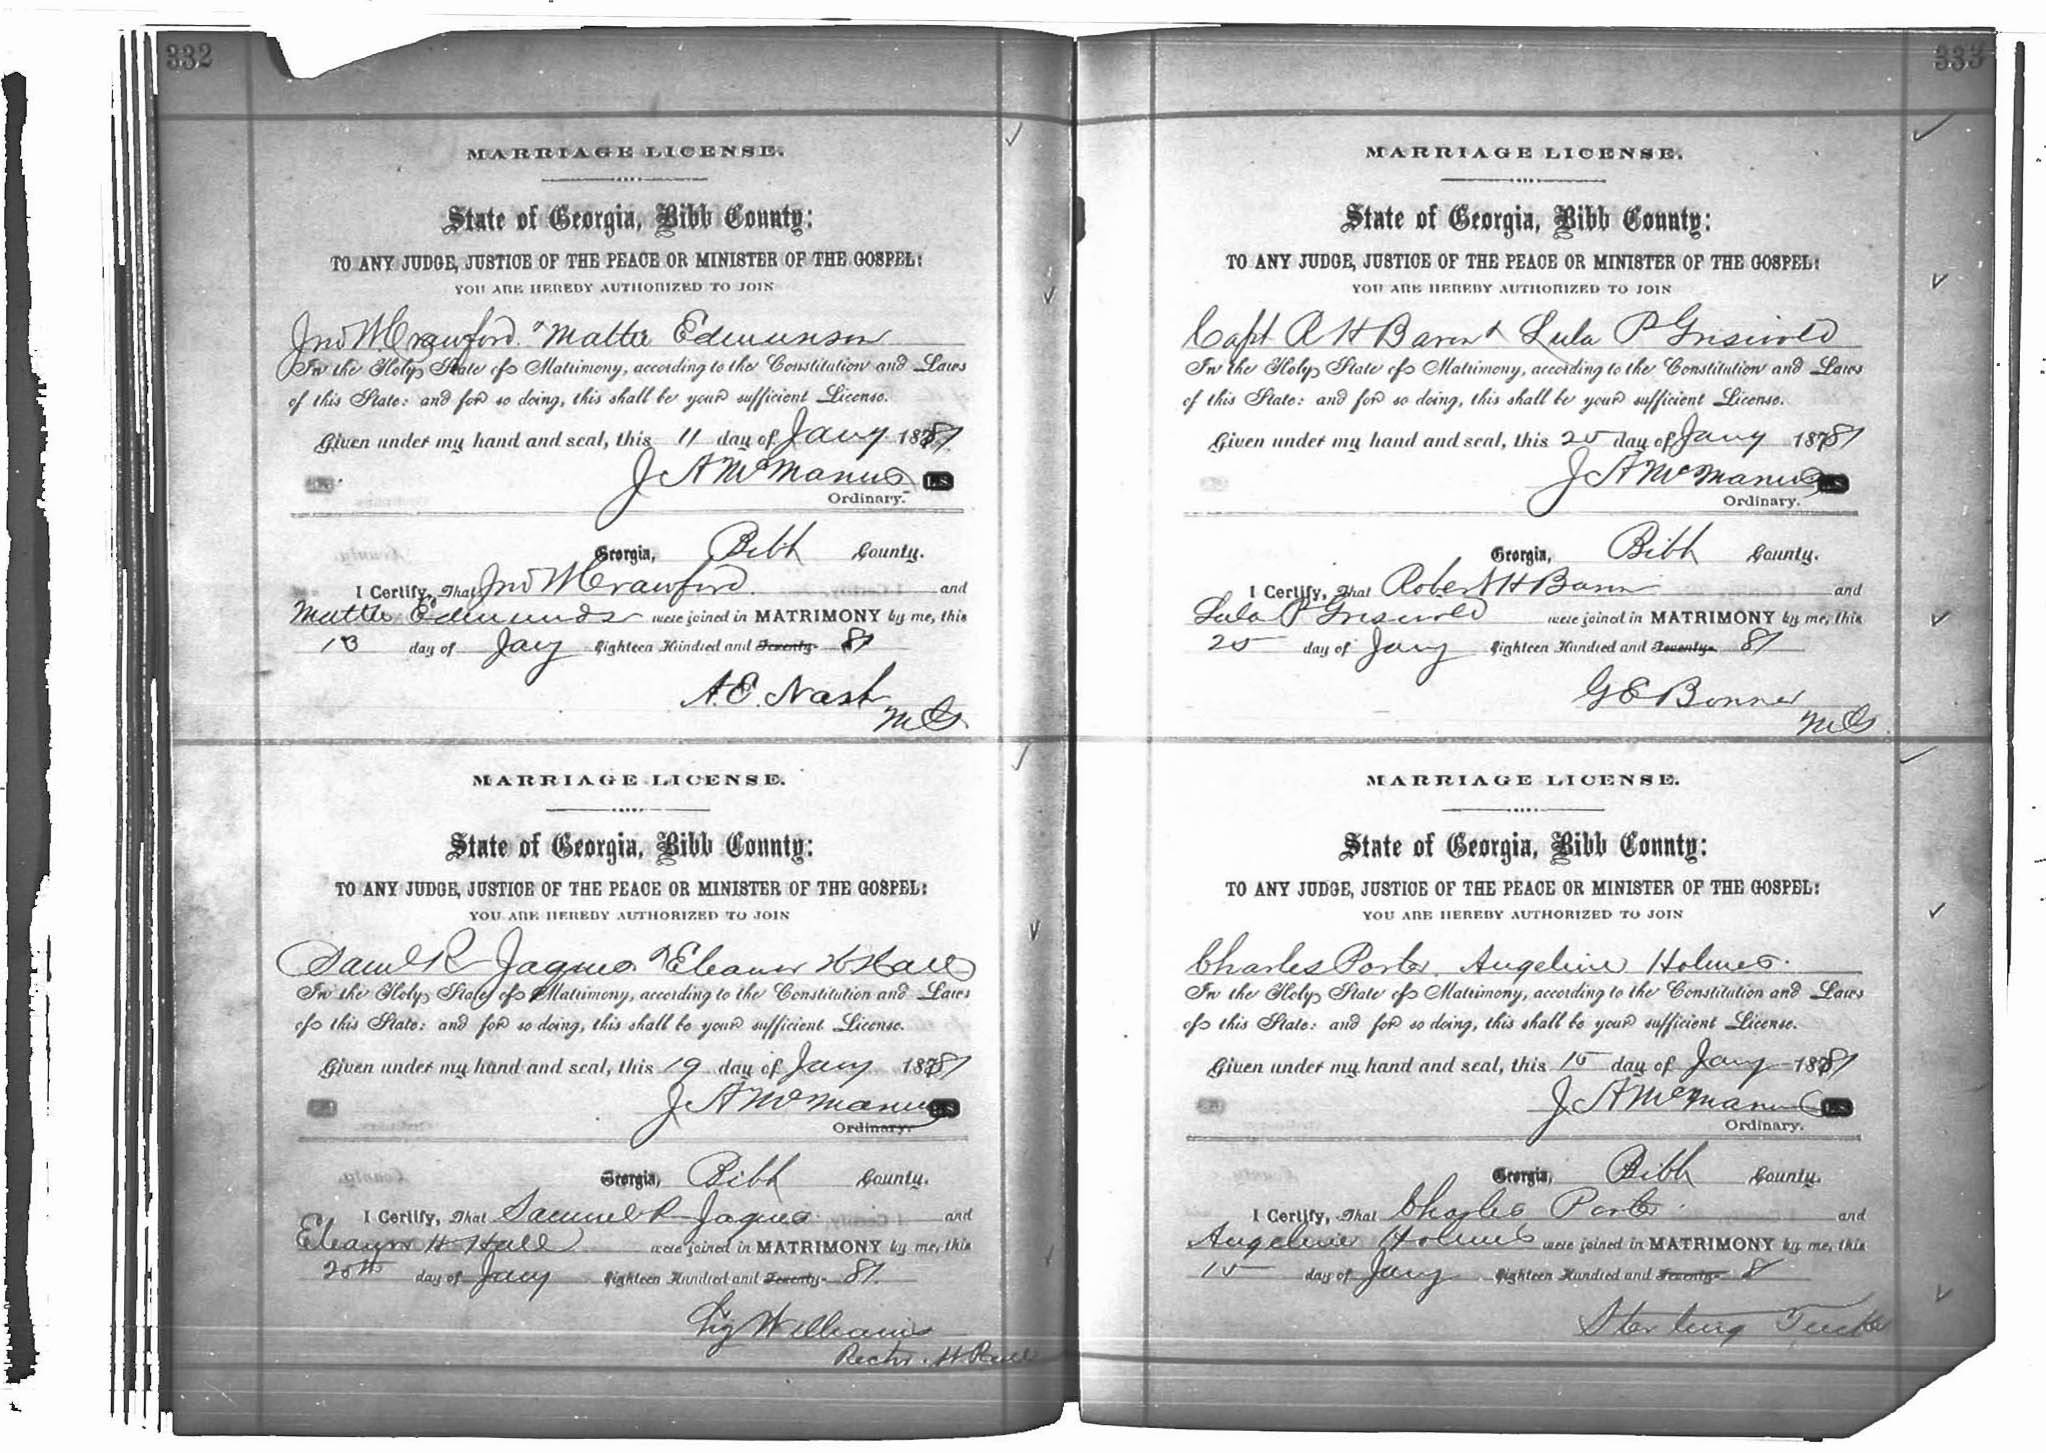 332
MARRIAGE LICENSE.
State of Georgia, Bibb County:
TO ANY JUDGE, JUSTICE OF THE PEACE OR MINISTER OF THE GOSPEL:
YOU ARE HEREBY AUTHORIZED TO JOIN
Jno W. Crawford & Mattie Edmunson
In the Holy State of Matrimony, according to the Constitution and Laws
of this State: and for so doing, this shall be your sufficient License.
Given under my hand and seal, this 11 day of Jany 1881
J A McManus L.S.
Ordinary.
Georgia, Bibb County.
I Certify, That Jno W Crawford and
Mattie Edmunds were joined in MATRIMONY by me, this
13 day of Jany Eighteen Hundred and Seventy 81
A. E. Nash
M G.
MARRIAGE LICENSE.
State of Georgia, Bibb County:
TO ANY JUDGE, JUSTICE OF THE PEACE OR MINISTER OF THE GOSPEL:
YOU ARE HEREBY AUTHORIZED TO JOIN
Saml R Jaques & Eleanor H Hall
In the Holy State of Matrimony, according to the Constitution and Laws
of this State: and for so doing, this shall be your sufficient License.
Given under my hand and seal, this 19 day of Jany 1881
J A McManus L.S.
Ordinary.
Georgia, Bibb County.
I Certify, That Samuel R Jaques and
Eleanor H Hall were joined in MATRIMONY by me, this
20th day of Jany Eighteen Hundred and Seventy 81.
Williams
Rector
333
MARRIAGE LICENSE.
State of Georgia, Bibb County:
TO ANY JUDGE, JUSTICE OF THE PEACE OR MINISTER OF THE GOSPEL:
YOU ARE HEREBY AUTHORIZED TO JOIN
Capt R H Barron & Lula P Griswold
In the Holy State of Matrimony, according to the Constitution and Laws
of this State: and for so doing, this shall be your sufficient License.
Given under my hand and seal, this 25 day of Jany 1881
J A McManus L.S.
Ordinary.
Georgia, Bibb County.
I Certify, That Robert H Barron and
Lula P Griswold were joined in MATRIMONY by me, this
25 day of Jany Eighteen Hundred and Seventy 81
G E Bonner
M G.
MARRIAGE LICENSE.
State of Georgia, Bibb County:
TO ANY JUDGE, JUSTICE OF THE PEACE OR MINISTER OF THE GOSPEL:
YOU ARE HEREBY AUTHORIZED TO JOIN
Charles Porter. Angeline Holmes.
In the Holy State of Matrimony, according to the Constitution and Laws
of this State: and for so doing, this shall be your sufficient License.
Given under my hand and seal, this 15 day of Jany 1881
J A McManus L.S.
Ordinary.
Georgia, Bibb County.
I Certify, That Charles Porter and
Angeline Holmes were joined in MATRIMONY by me, this
15 day of Jany Eighteen Hundred and Seventy 81
Sterling Tucker